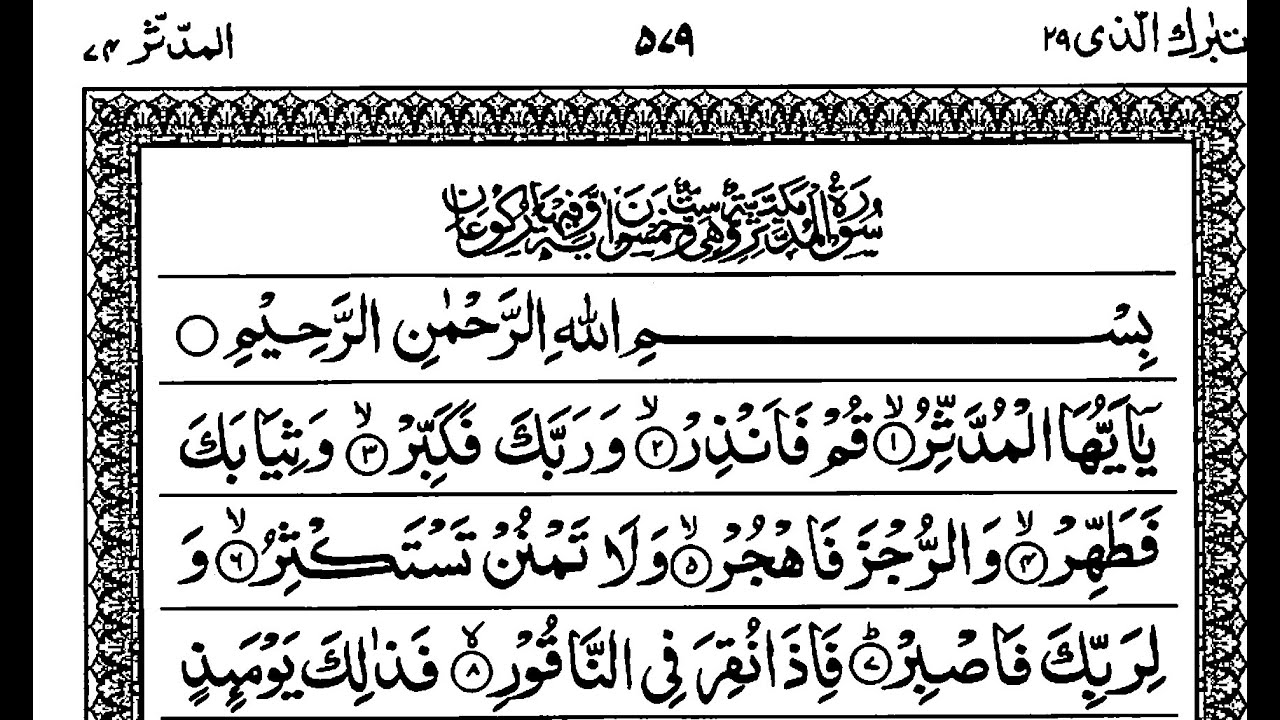 تبٰرك الّذى ٢٩
٥٧٩
المدّثّر ٧٤
سُوْرَةُ الْمُدَّثِّرِ مَكِّيَّةٌ وَّهِيَ سِتٌّ وَّخَمْسُوْنَ اٰيَةً وَّفِيْهَا رُكُوْعَانِ
بِسْمِ اللّٰهِ الرَّحْمٰنِ الرَّحِيْمِ ○
يٰۤاَيُّهَا الْمُدَّثِّرُ ۙ﴿١﴾ قُمْ فَاَنْذِرْ ۙ﴿٢﴾ وَرَبَّكَ فَكَبِّرْ ۙ﴿٣﴾ وَثِيَابَكَ
فَطَهِّرْ ۙ﴿٤﴾ وَالرُّجْزَ فَاهْجُرْ ۙ﴿٥﴾ وَلَا تَمْنُنْ تَسْتَكْثِرُ ۙ﴿٦﴾ وَ
لِرَبِّكَ فَاصْبِرْ ؕ﴿٧﴾ فَاِذَا نُقِرَ فِى النَّاقُوْرِ ۙ﴿٨﴾ فَذٰلِكَ يَوْمَىِٕذٍ